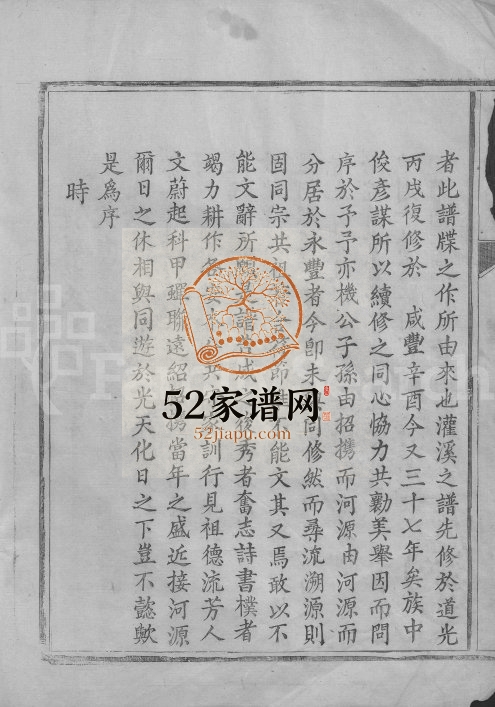 者此譜牒之作所由來也灌溪之譜先修於道光
丙戌復修於 咸豐辛酉今又三十七年矣族中
俊彥謀所以續修之同心協力共勷美舉因而問
序於予予亦機公子孫由招携而河源由河源而
分居於永豐者今卽未 同修然而尋流溯源則
固同宗共祖 不能文其又焉敢以不
能文辭所 譜 成 後秀者奮志詩書樸者
竭力耕作各 訓行見祖德流芳人
文蔚起科甲蟬聯遠紹 當年之盛近接河源
爾日之休相與同遊於光天化日之下豈不懿歟
是為序
時
52家谱网
52jiapu.com